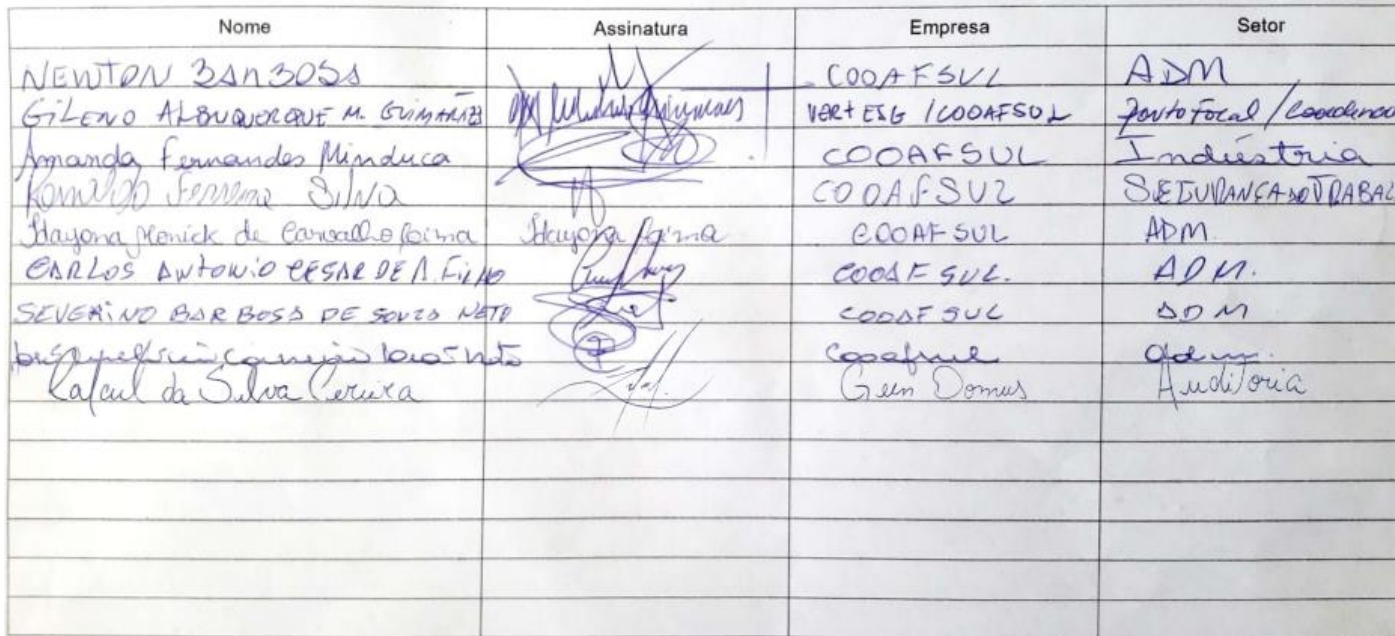 Nome Assinatura Empresa Setor
NEWTON BARBOSA COOAFSUL ADM
GILENO ALBUQUERQUE M. GUIMARÃES Guimaraes VERT ESG / COOAFSUL Ponto Focal / Coordenac
Amanda Fernandes Minduca COOAFSUL Indústria
Ronaldo Ferreira Silva COOAFSUL SEGURANÇA DO TRABAL
Hayona Monick de Carvalho Hayona COOAFSUL ADM
CARLOS ANTONIO CESAR DE A. FILHO COOAFSUL. ADM.
SEVERINO BARBOSA DE SOUZA NETO COOAFSUL ADM
Cooafsul Adm.
Rafael da Silva Pereira Geen Domus Auditoria